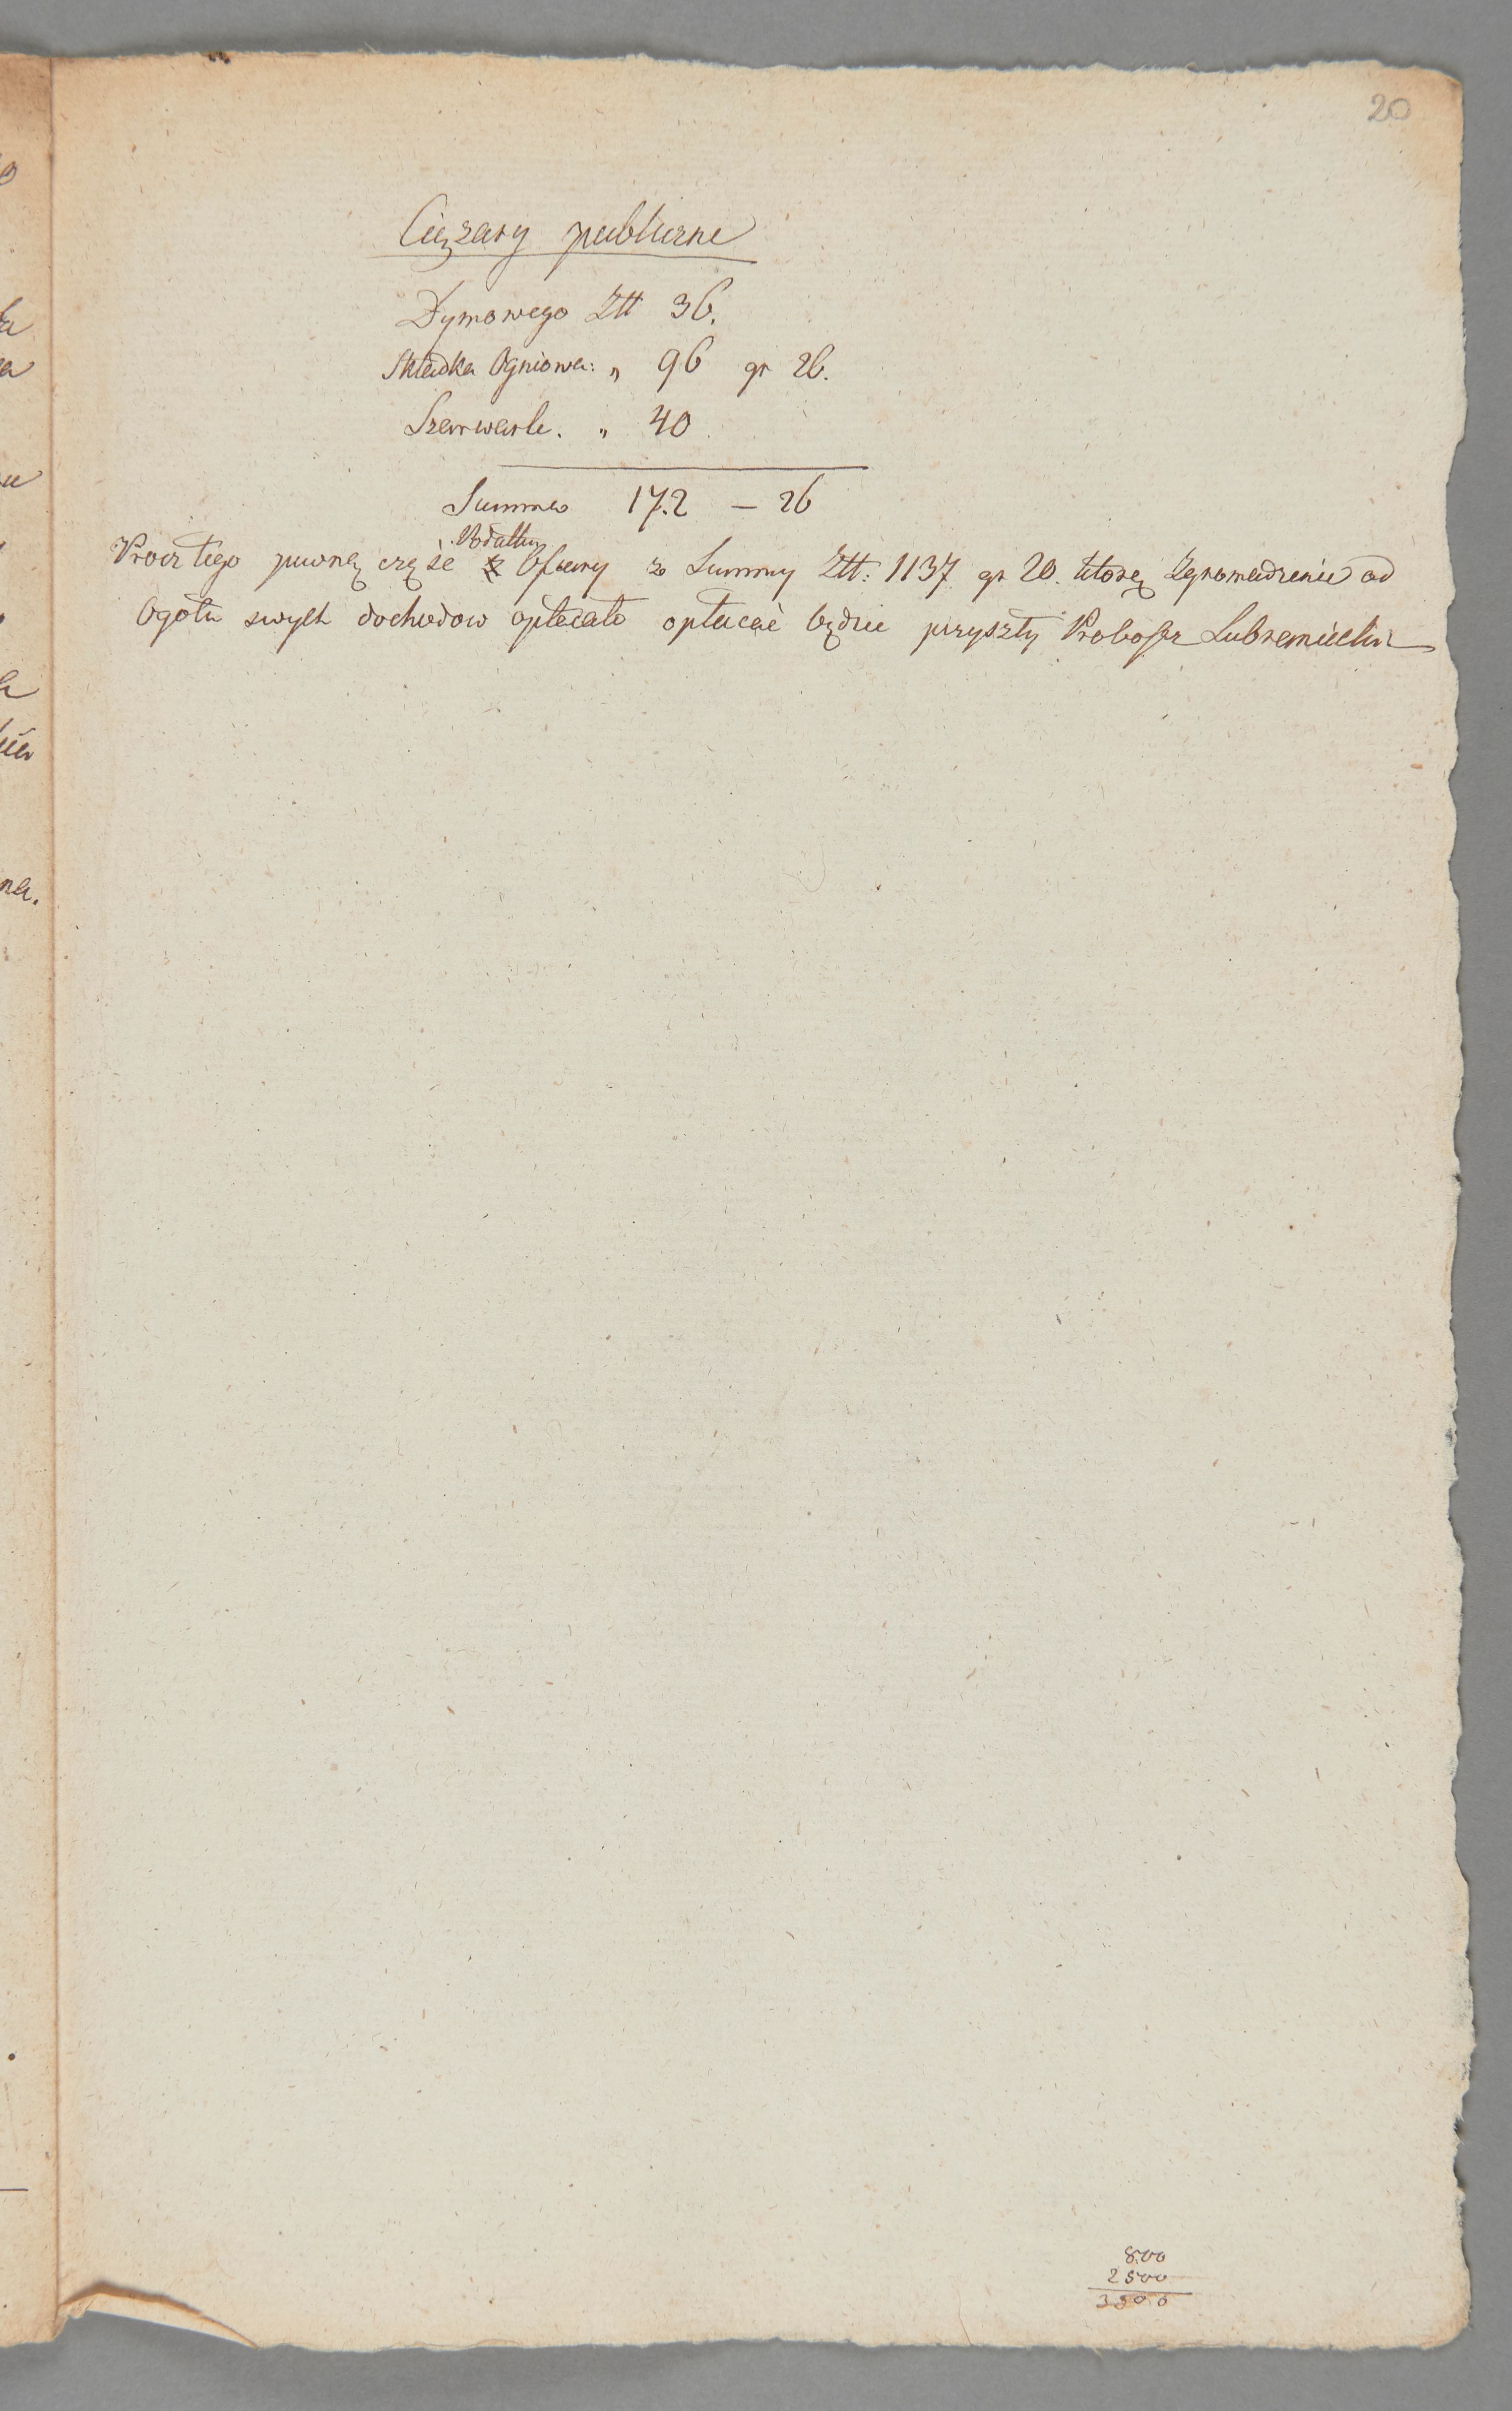 20
Ciężary publiczne
Dymowego Złł 36.
Składka Ogniowa: „ 96 gr 26.
Szarwark. „ 40.
Summa 172 – 26
Podatku
Procz tego pewną częśc Ofiary z Summy Złł: 1137 gr 20. ktorę Zgromadzenie od
Ogołu swych dochodow opłacało opłacać będzie przyszły Proboszcz
800
2500